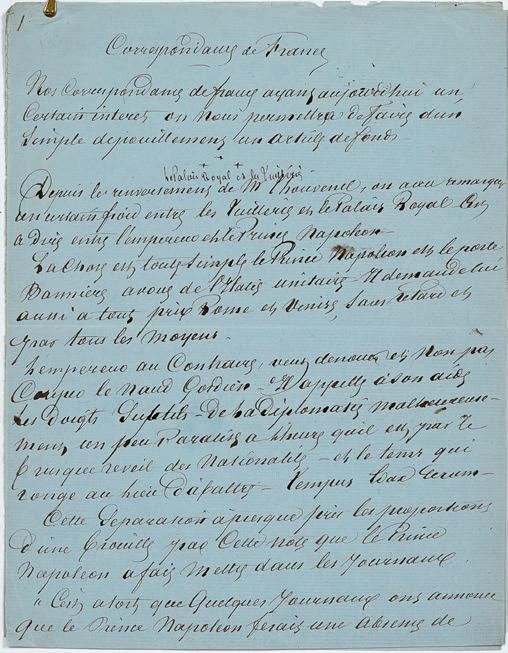 1
Correspondance de France
Nos Correspondances de france ayant aujourdhui un
Certain interet on nous permettra de faire d'un
Simple depouillement un article de fonds
le Palais Royal et les Tuileries
Depuis le renversement de Mr Thouvenel, on a cru remarquer
un certain froid entre les Tuileries et le Palais Royal C'est
a dire entre l'empereur et le Prince Napoleon
La Chose est toute Simple le Prince Napoleon est le porte
Banniere avoué de l'Italie unitaire - Il demande lui
aussi a tout prix Rome et Venise, Sans retard et
par tous les moyens.
L'empereur au Contraire, veut denouer et Non pas
Couper le Nœud Gordien - Il appelle à Son aide
les doigts Subtils - de la Diplomatie malheureuse-
ment un peu Paralisés a l'heure qu'il est par le
brusque reveil des Nationalités - et le tems qui
ronge au lieu d'abattre - tempus edax rerum -
Cette Separation a presque pris les proportions
d'une brouille par Cette Note que le Prince
Napoleon a fait mettre dans les Journaux.
« C'est a tort que Quelques Journaux ont annoncé
que le Prince Napoleon ferait une absence de